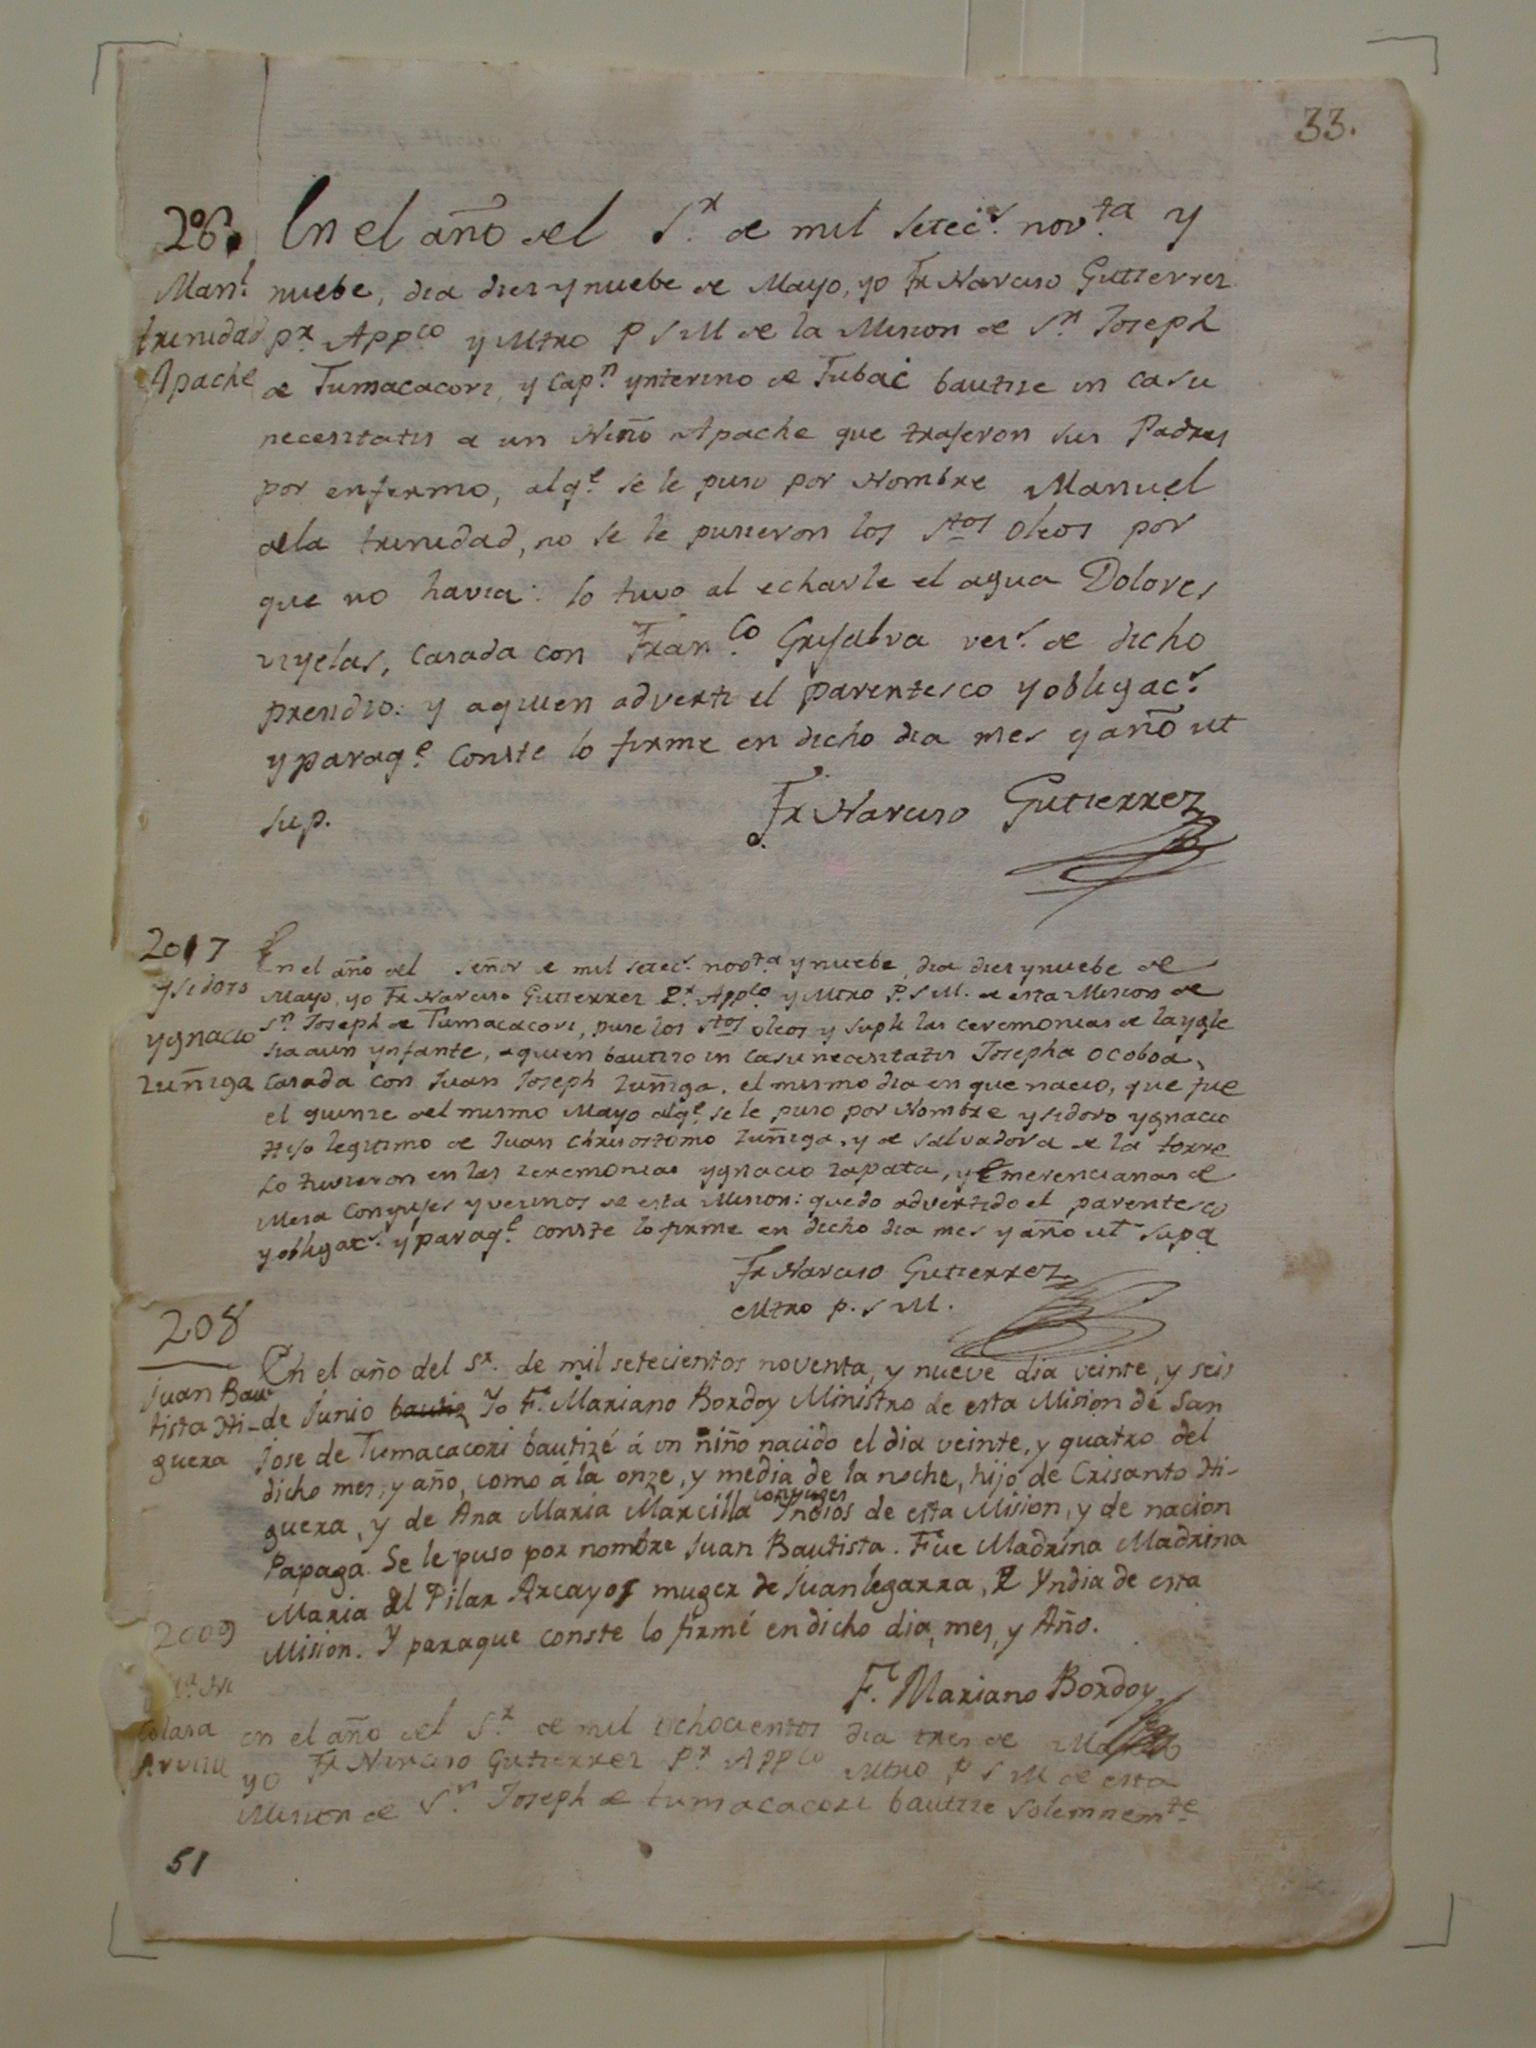 33.
206. En el año del Sr. de mil setecs. novta y
Manl. nuebe, dia dies y nuebe de Mayo, yo Fr Narciso Gutierrez
trinidad pr. Appco y Mtro P S M de la Mision de Sn Joseph
Apache de Tumacacori, y Capn ynterino de Tubac bautise in casu
necesitatis a un Niño Apache que trajeron sus Padres
por enfermo, alqe. se le puso por Nombre Manuel
dela trinidad, no se le pusieron los stos oleos por
que no havia: lo tuvo al echarle el agua Dolores
uzelas, casada con Franco. Grijalva vers. de dicho
presidio: y aquien adverti el parentesco y obligacs.
y paraqe. conste lo firme en dicho dia mes y año ut
sup. Fr Narciso Gutierrez
2017 En el año del señor de mil setecs. novta y nuebe, dia dies y nuebe de
Ysidoro Mayo, yo Fr Narciso Gutierrez Pr. Appco y Mtro P. S M. de esta Mision de
Ygnacio Sn Joseph de Tumacacori, puse los stos oleos y supli las ceremonias de la ygle
sia a un ynfante, aquien bautizo in casu necesitatis Josepha ocoboa,
zuñiga casada con Juan Joseph zuñiga, el mismo dia en que nacio, que fue
el quinze del mismo Mayo alqe. se le puso por Nombre ysidoro ygnacio
Hijo legitimo de Juan Chrisostomo zuñiga, y de salvadora de la torre
Lo tuvieron en las zeremonias ygnacio zapata, y Emerenciana de
Mesa Conyujes y vecinos de esta Mision: quedo advertido el parentesco
y obligacs. y paraqe. conste lo firme en dicho dia mes y año ut supa
Fr Narciso Gutierrez
Mtro p. S M.
208
En el año del Sr. de mil setecientos noventa, y nueve dia veinte, y seis
Juan Bau
tista Hi- de Junio bautiz Yo Fr. Mariano Bordoy Ministro de esta Mision de San
guera Jose de Tumacacori bautizé á un niño nacido el dia veinte, y quatro del
dicho mes, y año, como á la onze, y media de la noche, hijo de Crisanto Hi-
guera, y de Ana Maria Marcilla conyuges Indios de esta Mision, y de nacion
Papaga. Se le puso por nombre Juan Bautista. Fue Madrina Madrina
Maria del Pilar Arcayos muger de Juan legarra, Yndia de esta
Mision. Y paraque conste lo firmé en dicho dia, mes, y Año.
Fr. Mariano Bordoy
2009
en el año del Sr. de mil ochocientos dia tres de
yo Fr Narciso Gutierrez Pr Appco Mtro P S M de esta
Mision de Sn. Joseph de tumacacori bautise solemnemte.
51